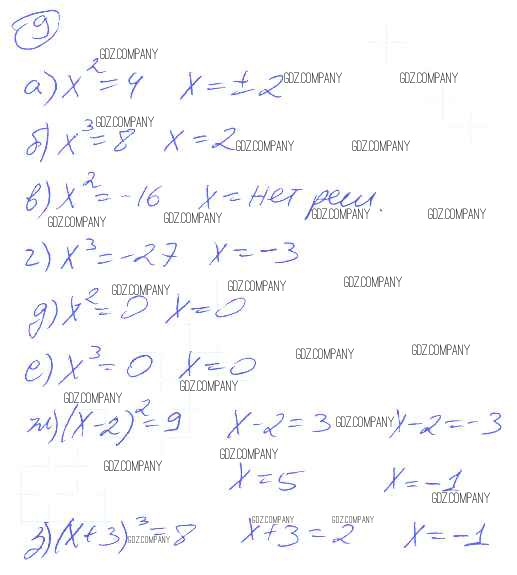 9
GDZ.COMPANY
а) x² = 4 x = ±2 GDZ.COMPANY GDZ.COMPANY
GDZ.COMPANY
б) x³ = 8 x = 2 GDZ.COMPANY GDZ.COMPANY
в) x² = -16 x = нет реш.
GDZ.COMPANY GDZ.COMPANY GDZ.COMPANY GDZ.COMPANY
г) x³ = -27 x = -3
GDZ.COMPANY GDZ.COMPANY GDZ.COMPANY
д) x² = 0 x = 0
е) x³ = 0 x = 0 GDZ.COMPANY GDZ.COMPANY
GDZ.COMPANY
GDZ.COMPANY
ж) (x-2)² = 9 x-2 = 3 GDZ.COMPANY x-2 = -3
GDZ.COMPANY GDZ.COMPANY
x = 5 x = -1
GDZ.COMPANY
GDZ.COMPANY GDZ.COMPANY
з) (x+3)³ = 8 x+3 = 2 x = -1
GDZ.COMPANY